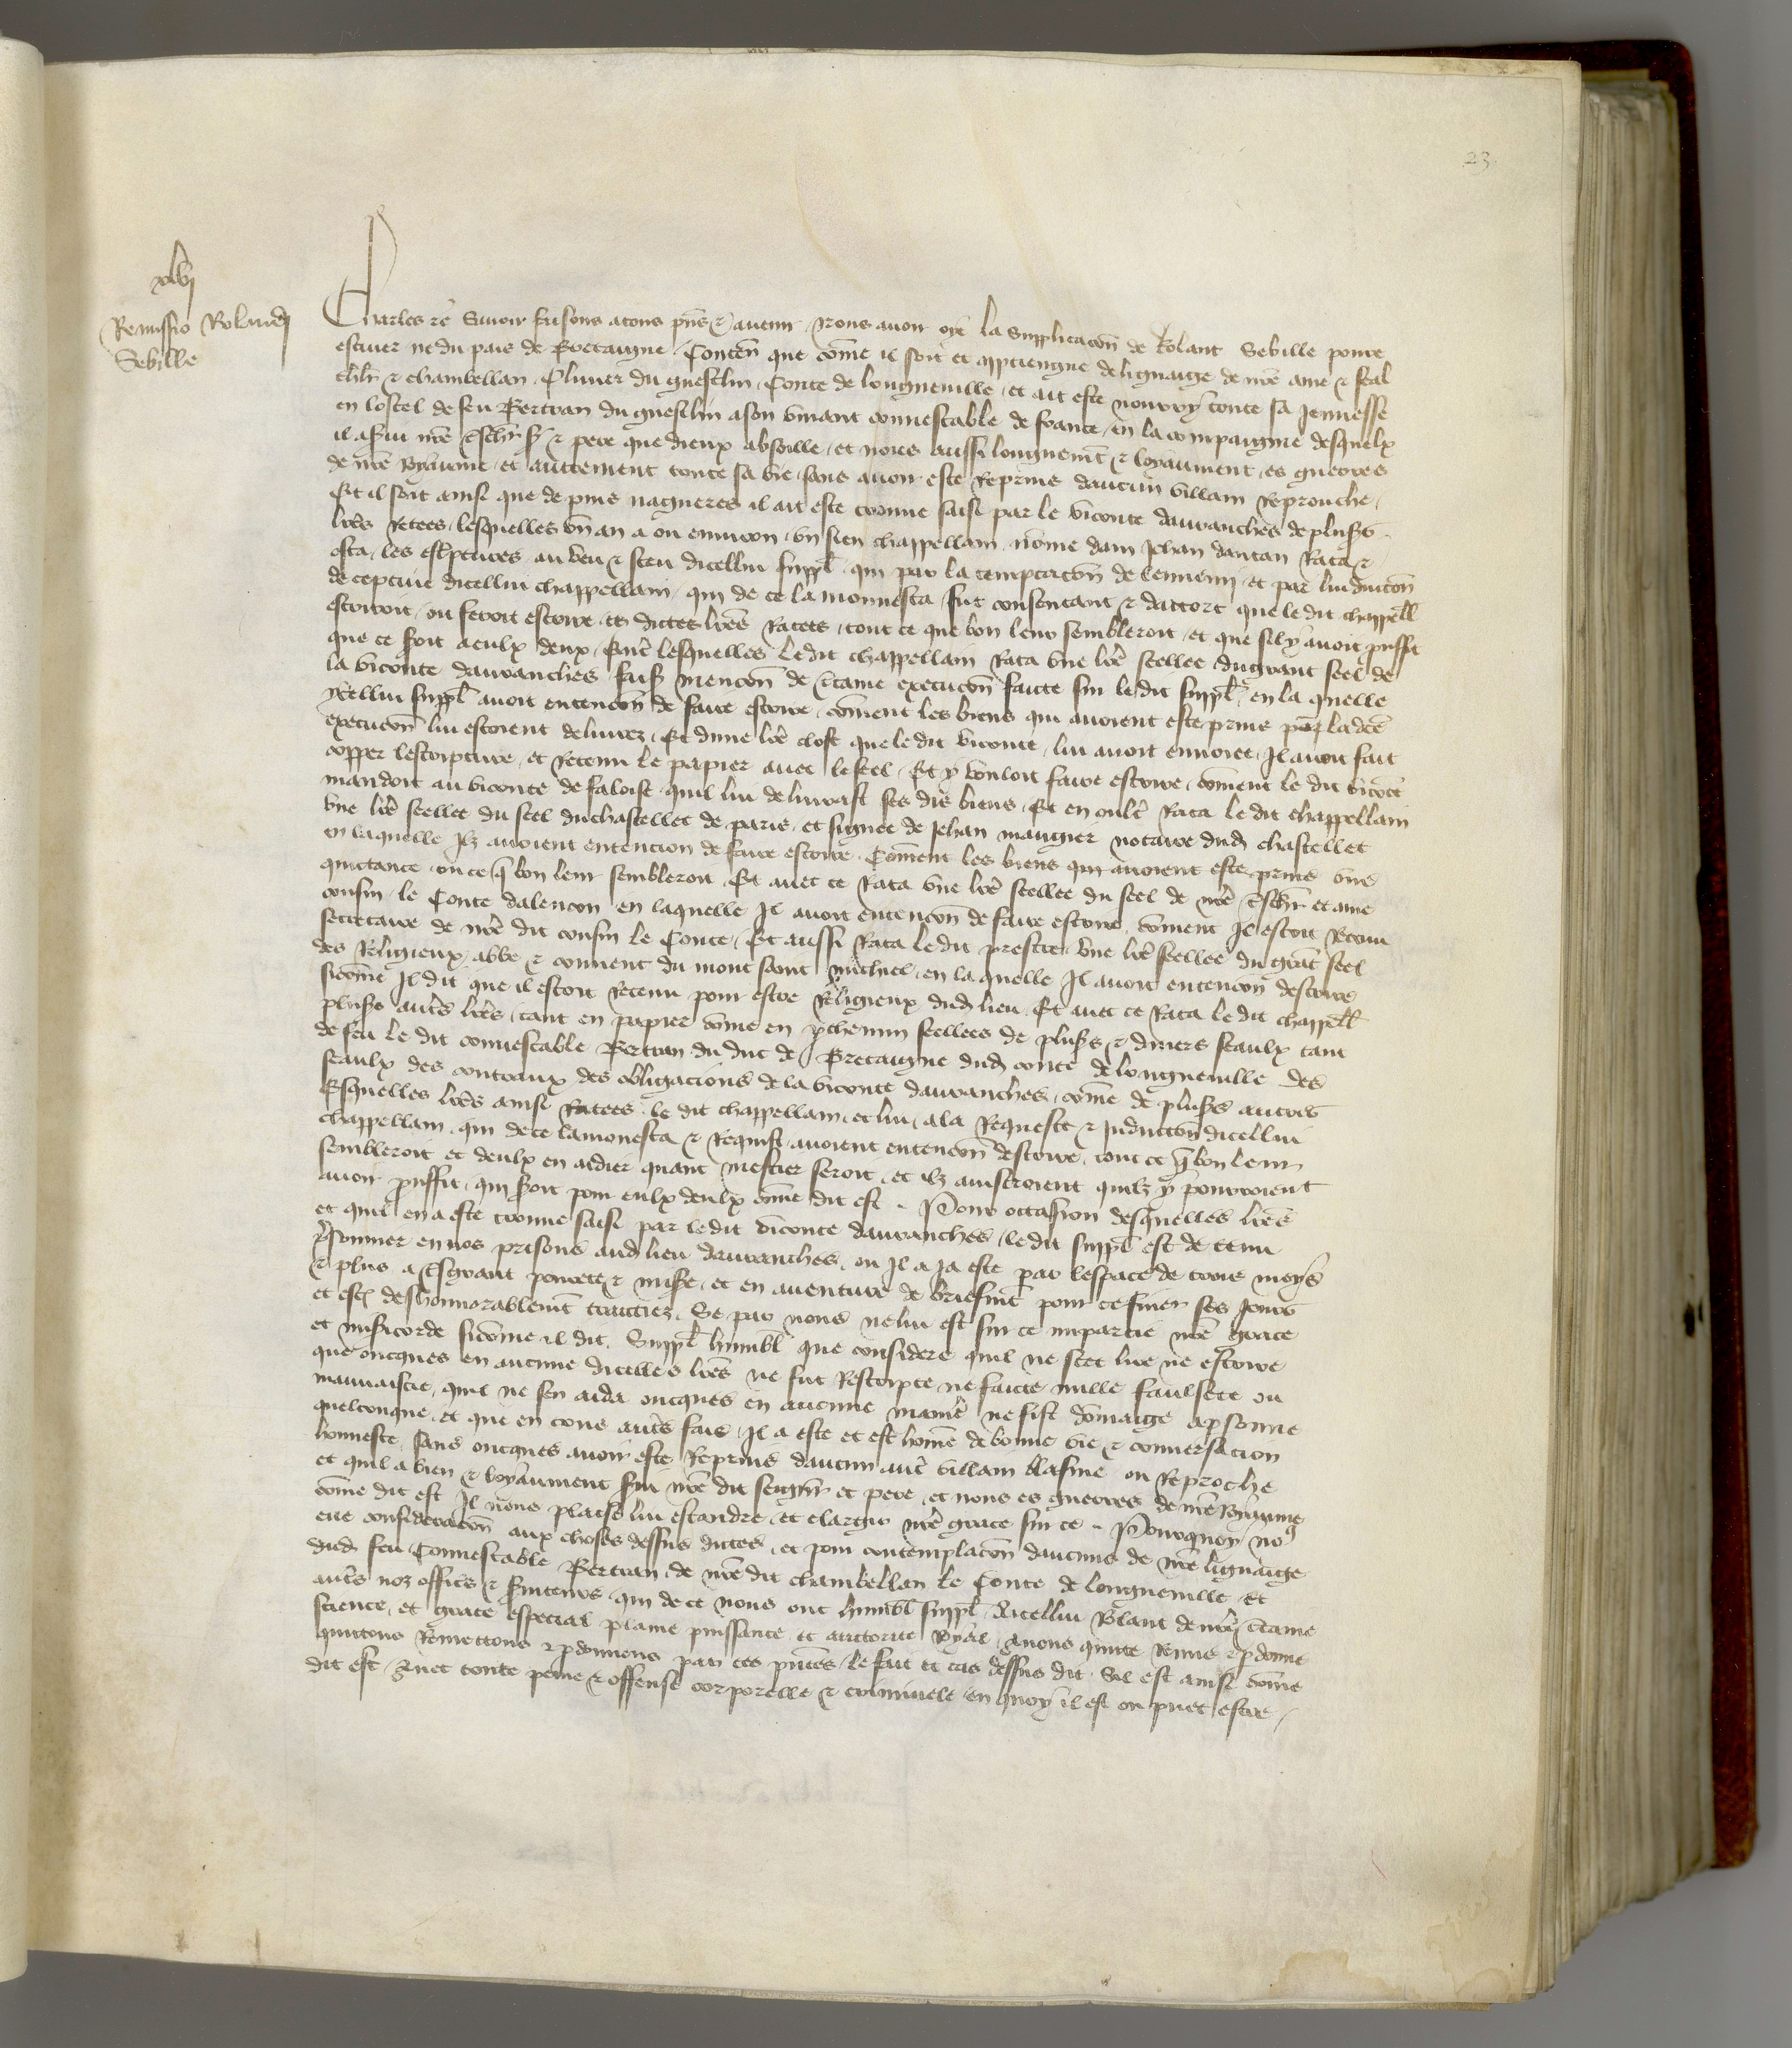 23
xlvi
Remissio Rolandi
Sebille
Charles etc Savoir faisons a tous pns & avenir Nous avoir oye la supplicacon de Rolant Sebille povre
escuier ne du pais de Bretaigne Conten que come il soit et apptiengne de lignaige de nre ame & feal
chlr & chambellan Olivier du guesclin Conte de longueville et ait este nourry toute sa Jennesse
en lostel de feu Bertran du guesclin a son vivant connestable de france en la compaignie desquelx
il a servi nre tschr sr & pere que dieux absoille et nous aussi longuemt & loyaument es guerres
de nre Royaume et autrement toute sa vie sans avoir este Reprins daucun villain Reprouche
Et il soit ainsi que de puis nagueres il ait este trouve saisi par le viconte davranches de plusrs
lres Retees lesquelles un an a ou environ un sien chappellain nome dam Jehan dautan Rata &
osta les escptures au veu & sceu dicellui suppl qui par la temptacon de lennemi et par linducon
deceptive dicellui chappellain qui de ce lamonnesta fut consentant & daccort que le dit chappell
escriroit ou feroit escrire es dictes lres Ratees tout ce que bon leur sembleroit et que sil y avoit prffit
que ce soit a eulx deux Entre lesquelles le dit chappellain Rata une lre seellee du grant seel de
la viconte davranches fais mencon de ctaine execucon faicte sur le dit suppl en la quelle
ycellui suppl avoit entencon de faire escrire coment les biens qui avoient este prins par la dce
execucon lui estoient delivrez Et dune lre close que le dit viconte lui avoit envoiee Il avoit fait
copper lescripture et Retenu le papier avec le seel Et y vouloit faire escrire coment le dit viconte
mandoit au viconte de faloise quil lui delivrast ses dis biens Et en oultre Rata le dit chappellain
une lre seellee du seel du chastellet de paris et signee de Jehan maugier notaire dud chastellet
en laquelle Ilz avoient entencion de faire escrire Coment les biens qui avoient este prins une
quictance ou ce que bon leur sembleroit Et avec ce Rata une lre seellee du seel de nre tschr et ame
cousin le Conte dalencon en laquelle Il avoit entencon de faire escrire coment Il estoit Retenu
secretaire de nre dit cousin le Conte Et aussi Rata le dit prestre une lre seellee du grat seel
des Religieux abbe & convent du mont saint michiel en la quelle Il avoit entencon descrire
sicome Il dit que il estoit Retenu pour estre Religieux dud lieu Et avec ce Rata le dit chappell
plusrs autres lres tant en papier come en pchemin seellees de plusrs & divers seaulx tant
de feu le dit connestable Bertran du duc de Bretaigne dud conte de longueville des
seaulx des contraux des obligacions de la viconte davranches come de plusrs autres
Esquelles lres ainsi Ratees le dit chappellain et lui a la Requeste & Induccon dicellui
chappellain qui de ce lamonesta & Requist avoient entencon descrire tout ce que bon leur
sembleroit et deulx en aidier quant mestier seroit et ilz aviseroient quilz y pourroient
avoir prouffit qui soit pour eulx deulx come dit est Pour occasion desquelles lres
et quil en a este trouve saisi par le dit viconte davranches le dit suppl est detenu
prsonnier en nos prisons aud lieu davranches ou Il a ja este par lespace de trois moys
& plus a tsgrant povrete & misere et en aventure de briefmt pour ce finer ses Jours
et estre deshonnorablemt traictiez Se par nous ne lui est sur ce impartie nre grace
et misicorde sicome il dit Suppl humbl que considere quil ne scet lire ne escrire
que oncques en aucune dicelles lres ne fut Rescripte ne faicte nulle faulsete ou
mauvaistie quil ne sen aida oncques en aucune maniere ne fist domaige a psonne
quelconque et que en tous autres fais Il a este et est home de bonne vie & conversacion
honneste sans oncques avoir este Reprins daucun autre villain blasme ou Reproche
et quil a bien & loyaument servi nre dit seigneur et pere et nous es guerres de nre Royaume
come dit est Il nous plaise lui estandre et elargir nre grace sur ce Pourquoy nos
eue consideracon aux choses dessus dictes et pour contemplacon daucuns de nre lignaige
dud feu Connestable Bertran de nre dit chambellan le Conte de longueville Et
autres noz offices & srviteurs qui de ce nous ont humbl suppl Aicellui Rolant de nre ctaine
science et grace especial plaine puissance et auctorite Royal Avons quicte Remis & pdonne
quictons Remettons & pdonnons par ces pntes le fait et cas dessus dit Sil est ainsi come
dit est Avec toute peine & offense corporelle & criminele en quoy il est ou puet estre